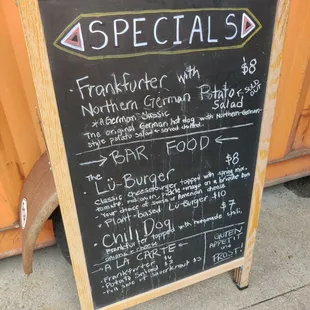 SPECIALS
Frankfurter with $8
Northern German Potato SOLD OUT
Salad
* A German Classic
The original German hot dog with Northern German
style potato salad served chilled
BAR FOOD
The $8
Lü-Burger
Classic cheeseburger topped with
tomato, red onion, pickle + mayo on a brioche bun
Your choice of American cheese
Plant-based Lü-Burger $10
Chili Dog $7
Frankfurter topped with homemade chili,
onions + cheese
A LA CARTE
Frankfurter
Potato Salad
Full size of Sauerkraut
GUTEN
APPETIT
und
PROST!